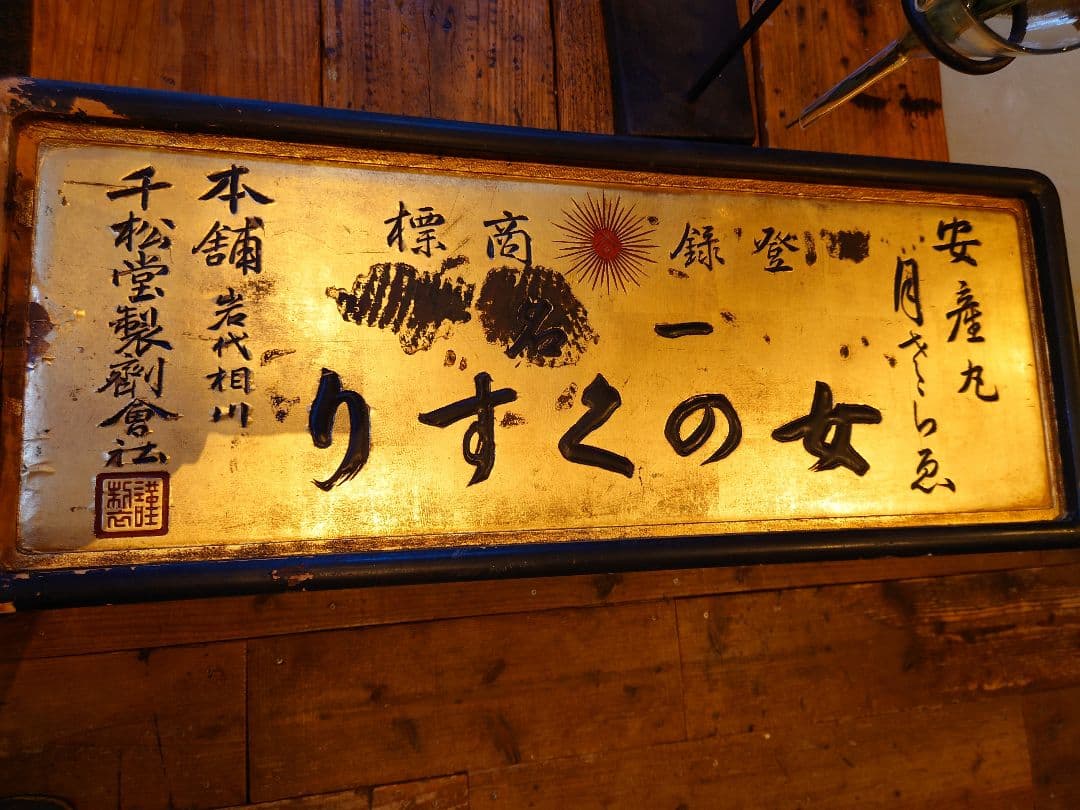 安産丸
月ざらゑ
登録商標
一名
女のくすり
本舗 岩代相川
千松堂製劑會社
謹製